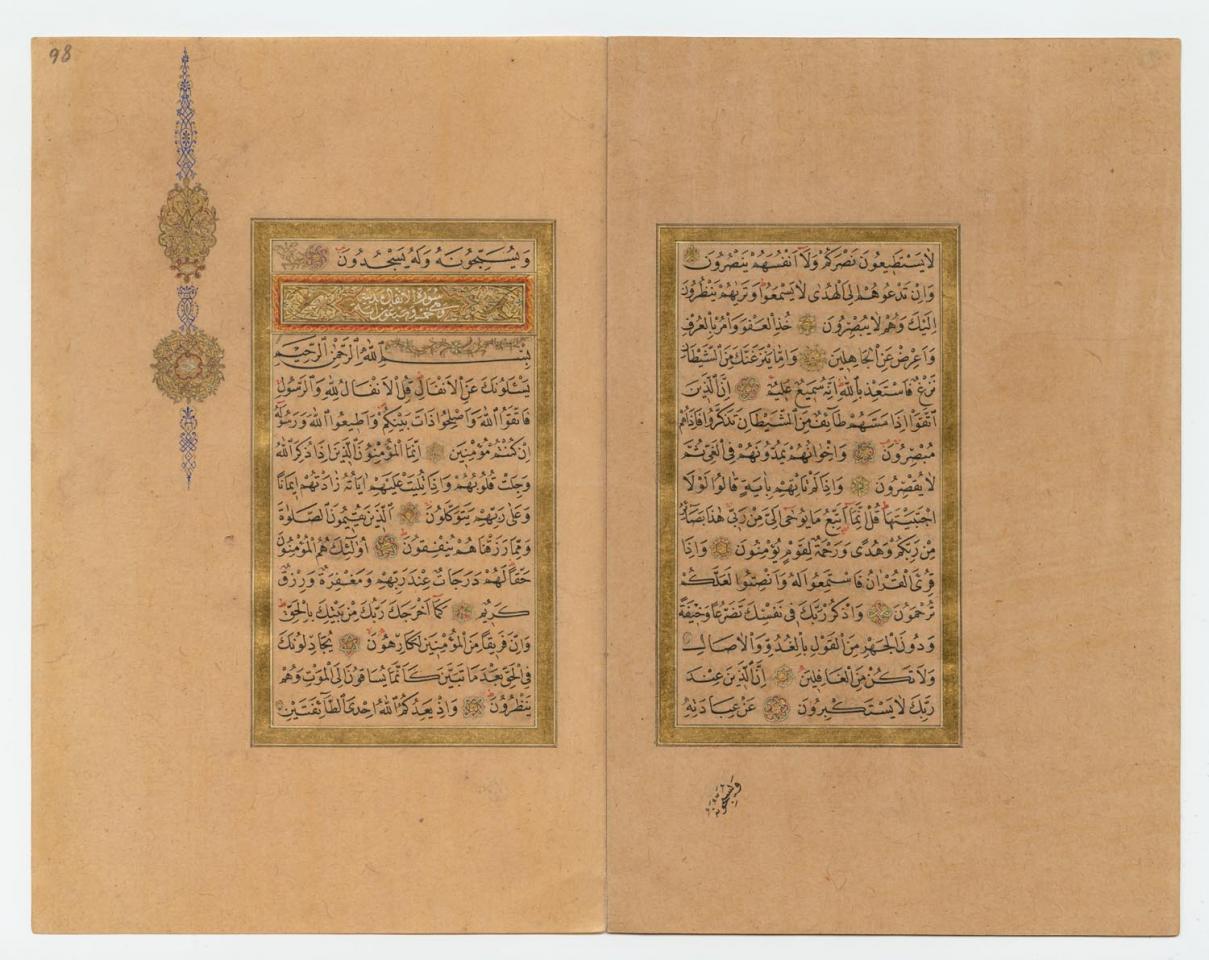 لَا يَسْتَطٖيعُونَ نَصْرَكُمْ وَلَٓا اَنْفُسَهُمْ يَنْصُرُونَ
وَاِنْ تَدْعُوهُمْ اِلَى الْهُدٰى لَا يَسْمَعُوا وَتَرٰيهُمْ يَنْظُرُونَ
اِلَيْكَ وَهُمْ لَا يُبْصِرُونَ خُذِ الْعَفْوَ وَاْمُرْ بِالْعُرْفِ
وَاَعْرِضْ عَنِ الْجَاهِلٖينَ وَاِمَّا يَنْزَغَنَّكَ مِنَ الشَّيْطَانِ
نَزْغٌ فَاسْتَعِذْ بِاللّٰهِ اِنَّهُ سَمٖيعٌ عَلٖيمٌ اِنَّ الَّذٖينَ
اتَّقَوْا اِذَا مَسَّهُمْ طَٓائِفٌ مِنَ الشَّيْطَانِ تَذَكَّرُوا فَاِذَا هُمْ
مُبْصِرُونَ وَاِخْوَانُهُمْ يَمُدُّونَهُمْ فِى الْغَىِّ ثُمَّ
لَا يُقْصِرُونَ وَاِذَا لَمْ تَاْتِهِمْ بِاٰيَةٍ قَالُوا لَوْلَا
اجْتَبَيْتَهَا قُلْ اِنَّمَٓا اَتَّبِعُ مَا يُوحٰٓى اِلَىَّ مِنْ رَبّٖى هٰذَا بَصَٓائِرُ
مِنْ رَبِّكُمْ وَهُدًى وَرَحْمَةٌ لِقَوْمٍ يُؤْمِنُونَ وَاِذَا
قُرِئَ الْقُرْاٰنُ فَاسْتَمِعُوا لَهُ وَاَنْصِتُوا لَعَلَّكُمْ
تُرْحَمُونَ وَاذْكُرْ رَبَّكَ فٖى نَفْسِكَ تَضَرُّعًا وَخٖيفَةً
وَدُونَ الْجَهْرِ مِنَ الْقَوْلِ بِالْغُدُوِّ وَالْاٰصَالِ
وَلَا تَكُنْ مِنَ الْغَافِلٖينَ اِنَّ الَّذٖينَ عِنْدَ
رَبِّكَ لَا يَسْتَكْبِرُونَ عَنْ عِبَادَتِهٖ
ويسبحونه
98
وَيُسَبِّحُونَهُ وَلَهُ يَسْجُدُونَ
سورة الانفال مدنية
بِسْمِ اللّٰهِ الرَّحْمٰنِ الرَّحٖيمِ
يَسْئَلُونَكَ عَنِ الْاَنْفَالِ قُلِ الْاَنْفَالُ لِلّٰهِ وَالرَّسُولِ
فَاتَّقُوا اللّٰهَ وَاَصْلِحُوا ذَاتَ بَيْنِكُمْ وَاَطٖيعُوا اللّٰهَ وَرَسُولَهُ
اِنْ كُنْتُمْ مُؤْمِنٖينَ اِنَّمَا الْمُؤْمِنُونَ الَّذٖينَ اِذَا ذُكِرَ اللّٰهُ
وَجِلَتْ قُلُوبُهُمْ وَاِذَا تُلِيَتْ عَلَيْهِمْ اٰيَاتُهُ زَادَتْهُمْ اٖيمَانًا
وَعَلٰى رَبِّهِمْ يَتَوَكَّلُونَ اَلَّذٖينَ يُقٖيمُونَ الصَّلٰوةَ
وَمِمَّا رَزَقْنَاهُمْ يُنْفِقُونَ اُولٰٓئِكَ هُمُ الْمُؤْمِنُونَ
حَقًّا لَهُمْ دَرَجَاتٌ عِنْدَ رَبِّهِمْ وَمَغْفِرَةٌ وَرِزْقٌ
كَرٖيمٌ كَمَٓا اَخْرَجَكَ رَبُّكَ مِنْ بَيْتِكَ بِالْحَقِّ
وَاِنَّ فَرٖيقًا مِنَ الْمُؤْمِنٖينَ لَكَارِهُونَ يُجَادِلُونَكَ
فِى الْحَقِّ بَعْدَ مَا تَبَيَّنَ كَاَنَّمَا يُسَاقُونَ اِلَى الْمَوْتِ وَهُمْ
يَنْظُرُونَ وَاِذْ يَعِدُكُمُ اللّٰهُ اِحْدَى الطَّٓائِفَتَيْنِ